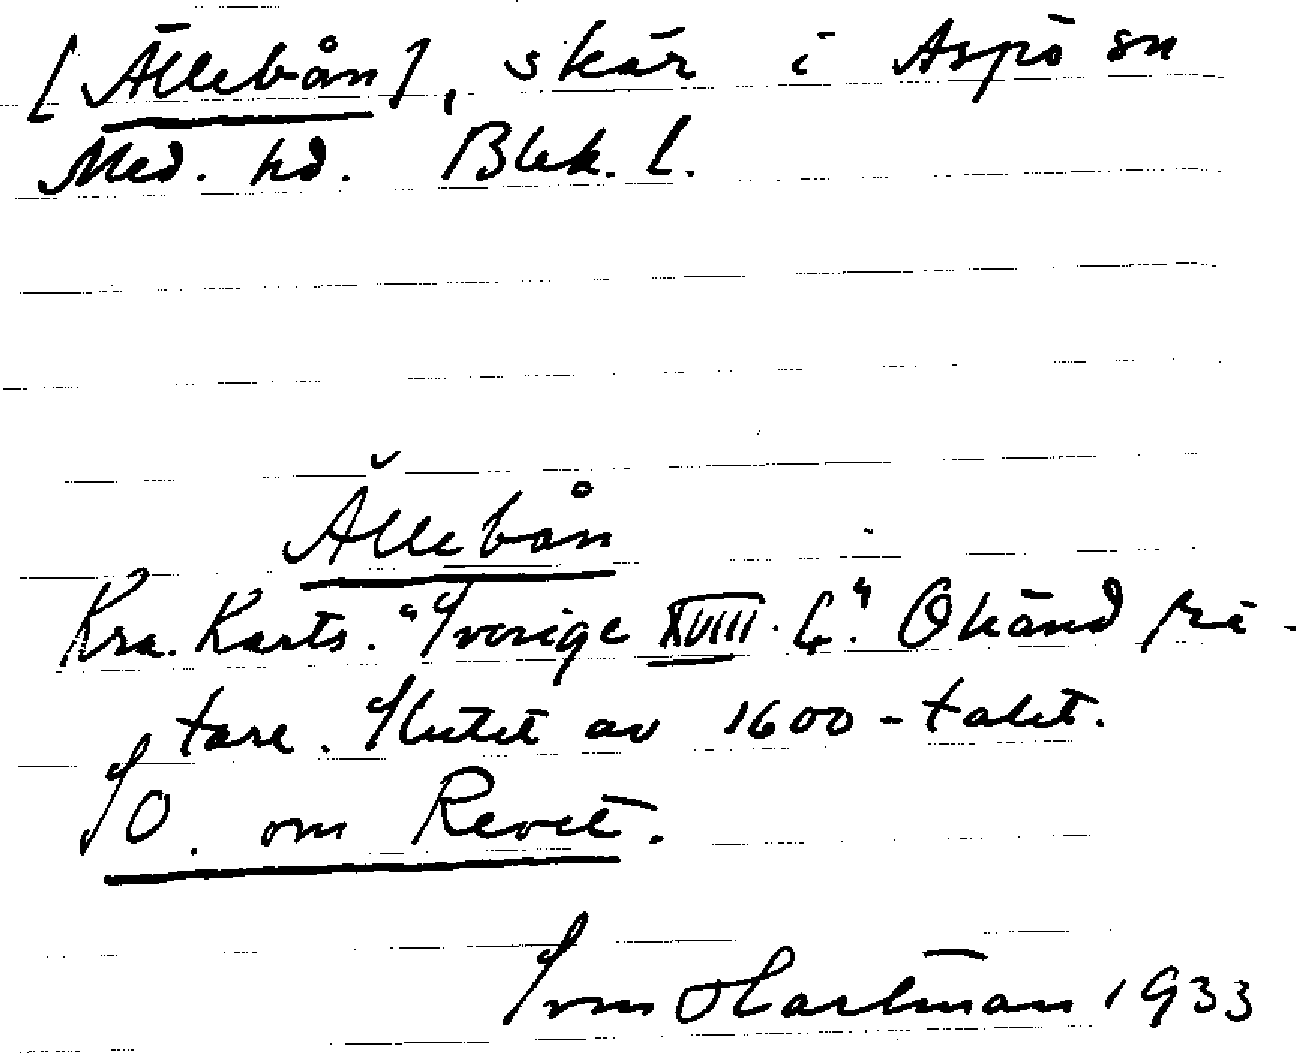 [Ällebån], skär i Aspö sn
Med. hd. Blek. l.
Ällebån
Kra. Karts. "Sverige XVIII. 6." Okänd förfat-
tare. Slutet av 1600-talet.
SO. om Revet.
Sven Hartman 1933